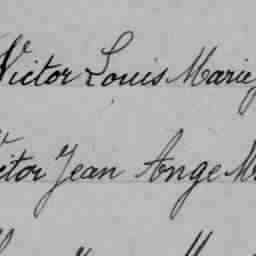 Victor Louis Marie
Victor Jean Ange